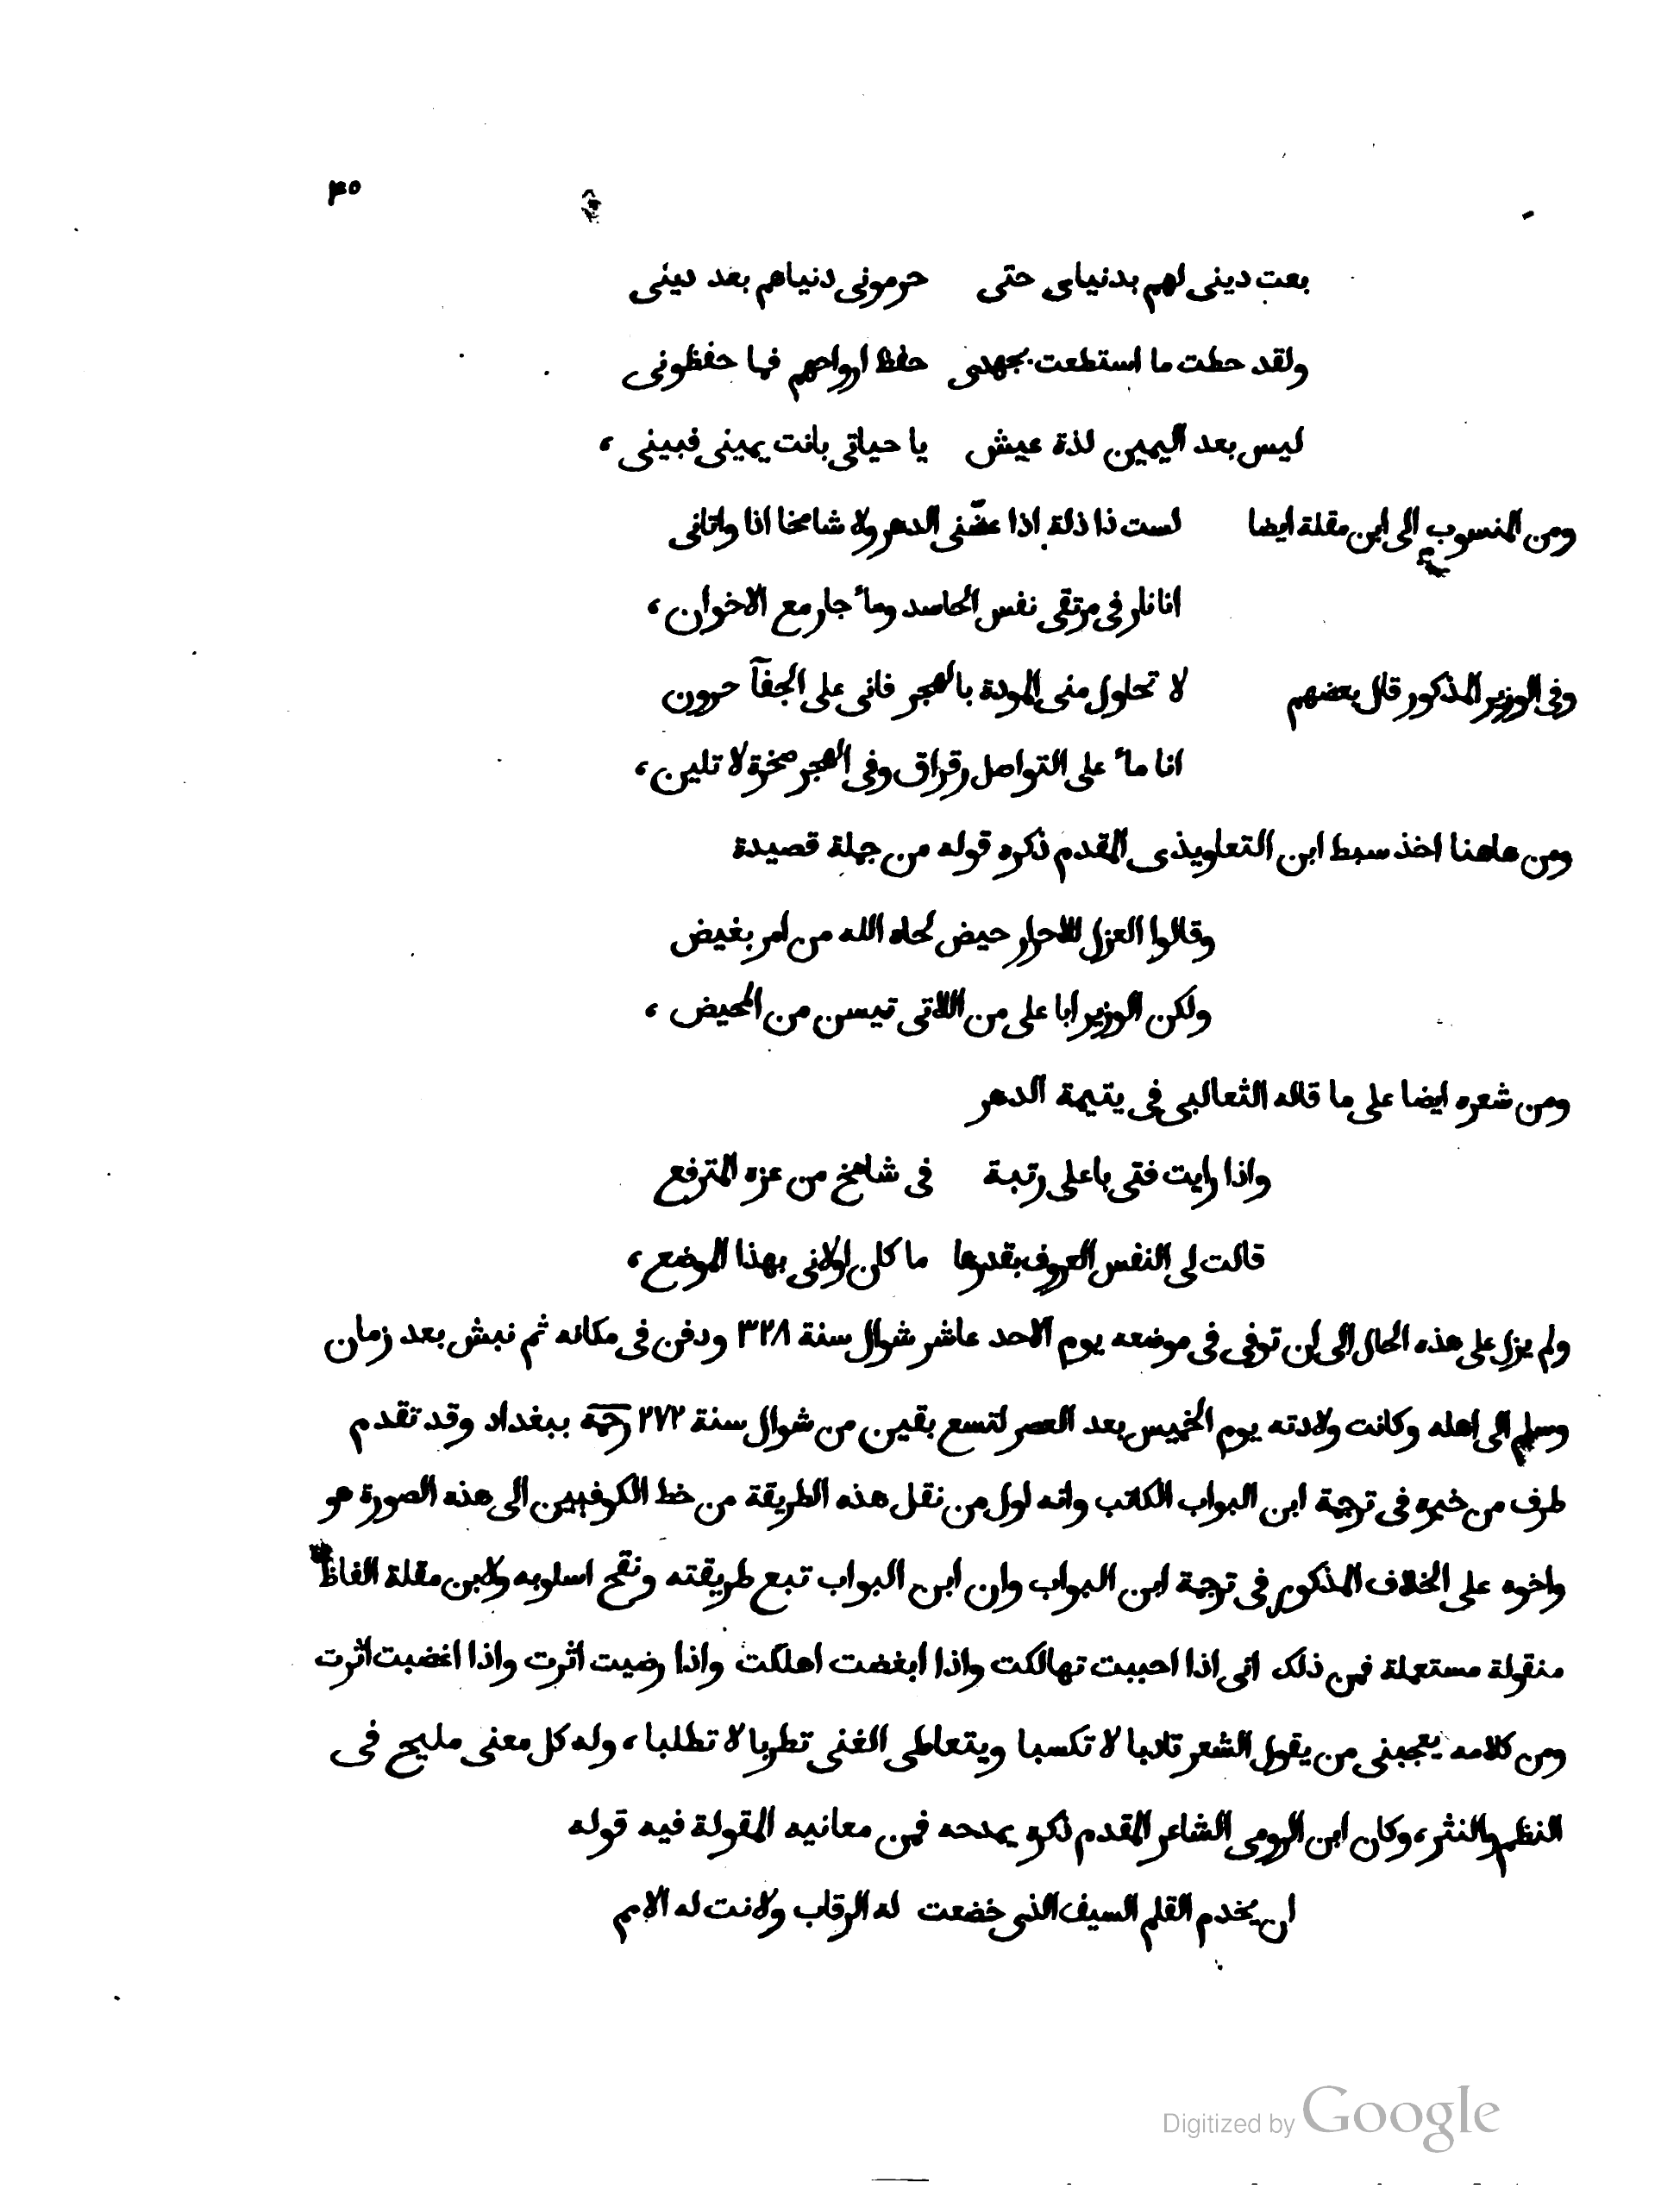 ٣٥
بعت دينى لهم بدنياى حتى حرمونى دنياهم بعد دينى
ولقد حطت ما استطعت بجهدى حفظ ارواحهم فما حفظونى
ليس بعد اليمين لذة عيش يا حياتى بانت يمينى فبينى ،
ومن المنسوب الى ابن مقلة ايضا لست ذا ذلة اذا عضّنى الدهر ولا شامخا اذا واتانى
انا نار فى مرتقى نفس الحاسد ومأ جار مع الاخوان ،
وفى الوزير المذكور قال بعضهم لا تحاول منى المودة بالهجر فانى على الجفآ حرون
انا مأ على التواصل رقراق وفى الهجر صخرة لا تلين ،
ومن هاهنا اخذ سبط ابن التعاويذى المقدم ذكره قوله من جملة قصيدة
وقالوا العزل للاحرار حيض لحاه الله من امر بغيض
ولكن الوزير ابا على من اللاتى تيسن من المحيض ،
ومن شعره ايضا على ما قاله الثعالبى فى يتيمة الدهر
واذا رايت فتى باعلى رتبة فى شامخ من عزه المترفع
قالت لى النفس العروف بقدرها ما كان اولانى بهذا الموضع ،
ولم يزل على هذه الحال الى ان توفى فى موضعه يوم الاحد عاشر شوال سنة ٣٢٨ ودفن فى مكانه ثم نبش بعد زمان
وسلم الى اهله وكانت ولادته يوم الخميس بعد العصر لتسع بقين من شوال سنة ٢٧٢ رحمة ببغداد وقد تقدم
طرف من خبره فى ترجمة ابن البواب الكاتب وانه اول من نقل هذه الطريقة من خط الكوفيين الى هذه الصورة هو
واخوه على الخلاف المذكور فى ترجمة ابن البواب وان ابن البواب تبع طريقته ونقح اسلوبه ولابن مقلة الفاظ
منقولة مستعملة فمن ذلك انى اذا احببت تهالكت واذا ابغضت اهلكت واذا رضيت اثرت واذا اغضبت اثرت
ومن كلامه يعجبنى من يقول الشعر تادبا لا تكسبا ويتعاطى الغنى تطربا لا تطلبا ، وله كل معنى مليح فى
النظم والنثر ، وكان ابن الرومى الشاعر المقدم ذكره يمدحه فمن معانيه المقولة فيه قوله
ان يخدم القلم السيف الذى خضعت له الرقاب ولانت له الامم
Digitized by Google